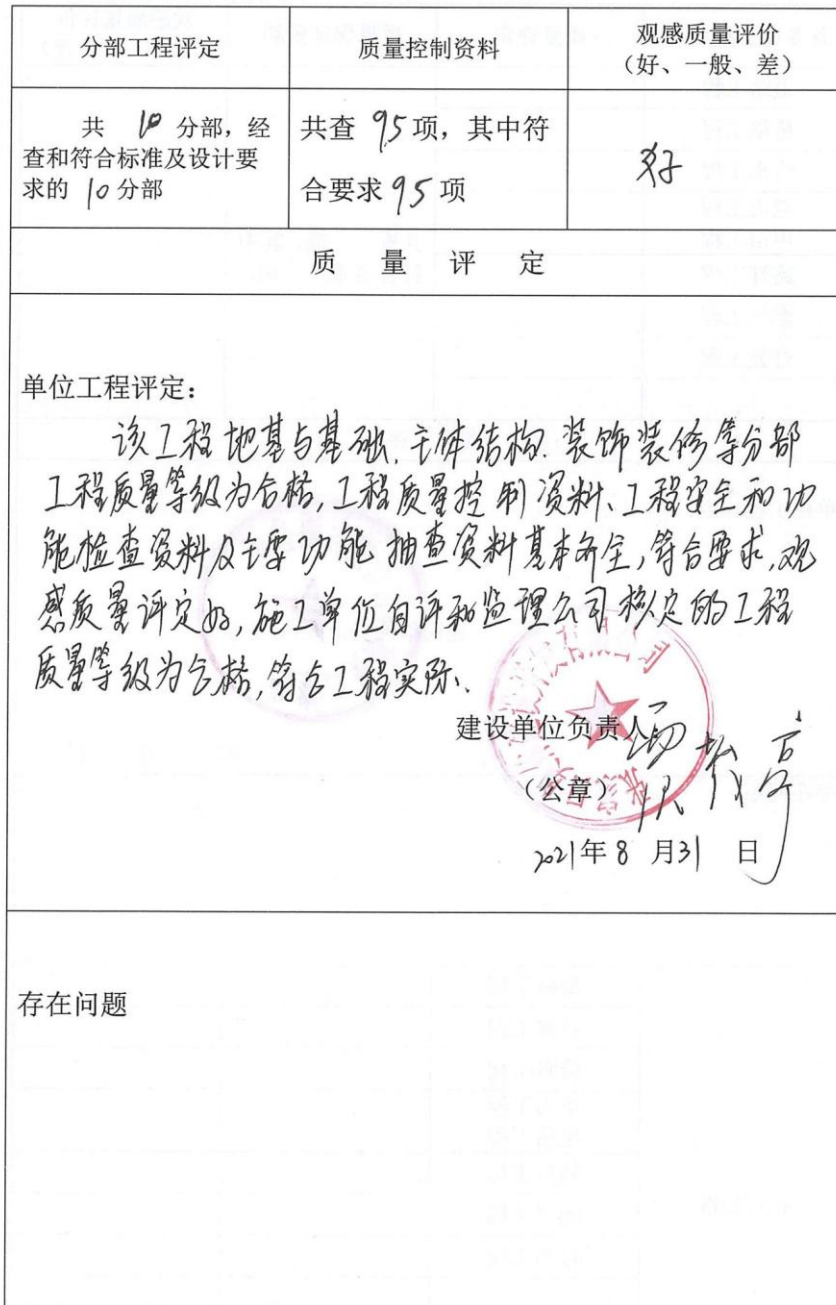 分部工程评定
质量控制资料
观感质量评价
（好、一般、差）
共 10 分部，经
查和符合标准及设计要
求的 10 分部
共查 95 项，其中符
合要求 95 项
好
质 量 评 定
单位工程评定：
该工程地基与基础、主体结构、装饰装修等分部
工程质量等级为合格，工程质量控制资料、工程安全和功
能检查资料及主要功能抽查资料基本齐全，符合要求，观
感质量评定好，施工单位自评和监理公司核定的工程
质量等级为合格，符合工程实际。
建设单位负责人
（公章）
2021年 8 月31 日
存在问题